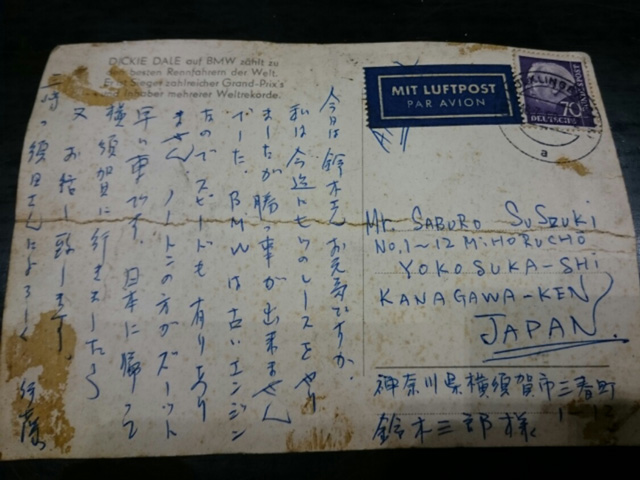 DICKIE DALE auf BMW zählt zu
besten Rennfahrern der Welt.
Sieger zahlreicher Grand-Prix's
mehrerer Weltrekorde.
今日は鈴木さんお元気ですか。
私は今迄 のレースをやり
ましたが勝つ事が出来ません
でした。B.M.Wは古いエンジン
なのでスピードも有りあり
ません。ノートンの方がズーット
早い車です。日本に帰って
横須賀に行きましたら
又お話し致します。
須田さんによろしく 伊藤
MIT LUFTPOST
PAR AVION
70
a
Mr. SABURO SUSZUKI
NO.1~12 MIHORUCHO
YOKOSUKA-SHI
KANAGAWA-KEN
JAPAN.
神奈川県横須賀市三春町
1-12
鈴木三郎様